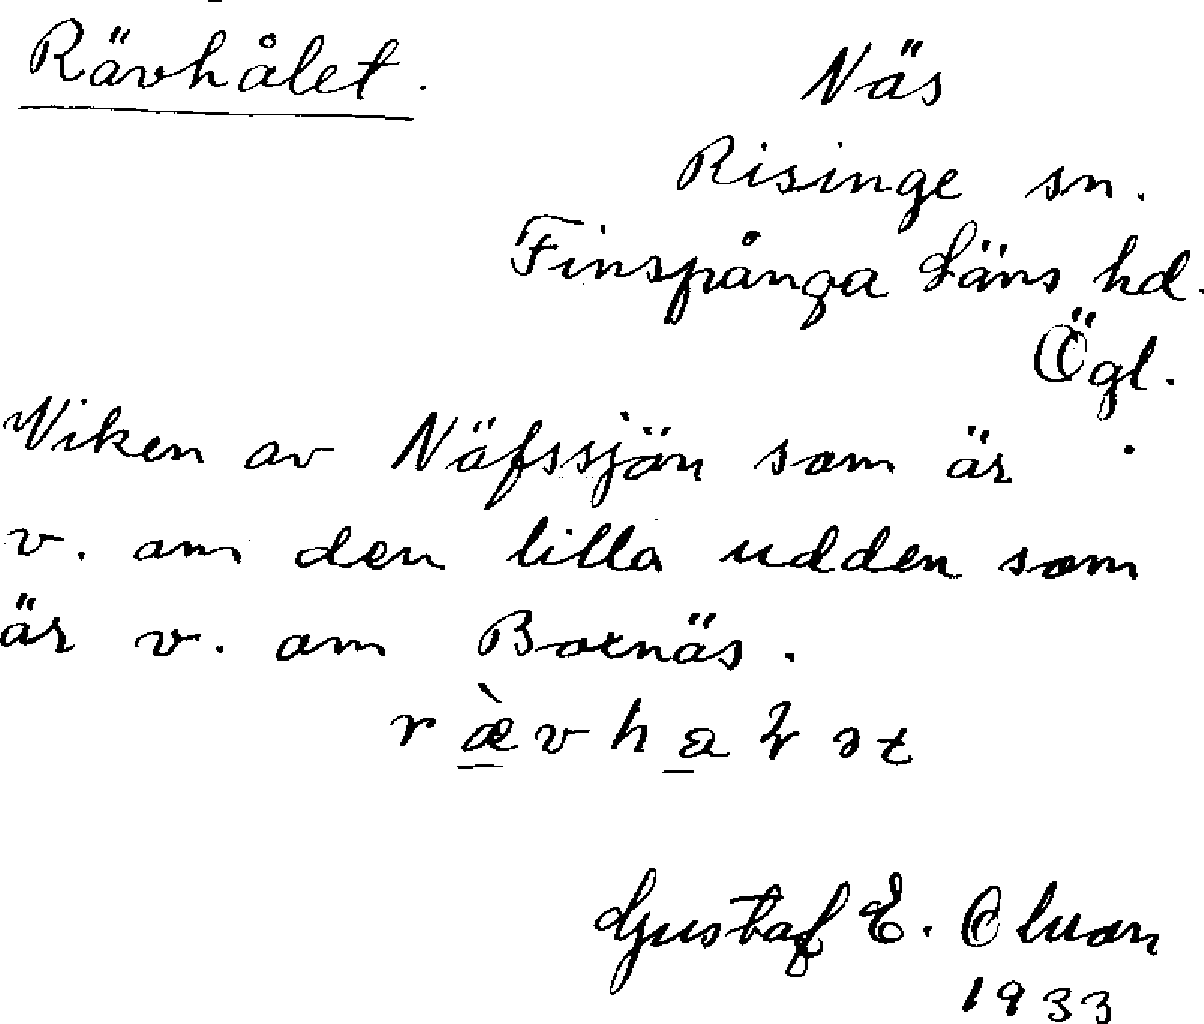 Rävhålet.
Näs
Risinge sn.
Finspånga Läns hd.
Ögl.
Viken av Näfssjön som är
v. om den lilla udden som
är v. om Bornäs.
Gustaf E.
1933